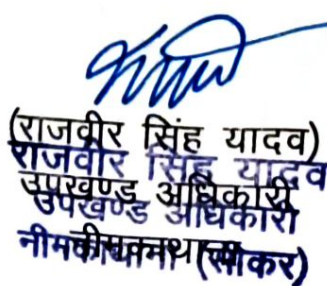 (राजवीर सिंह यादव)
राजवीर सिंह यादव
उपखण्ड अधिकारी
उपखण्ड अधिकारी
नीमकाथाना (सीकर)
नीमकाथाना